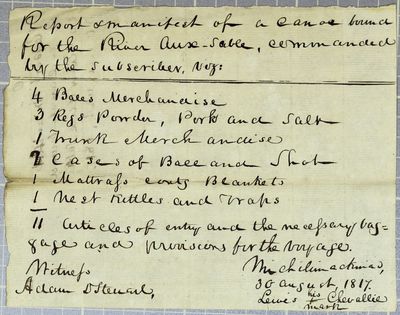 Report & manifest of a Canoe bound
for the River Aux-Sable, commanded
by the subscriber, viz:
4 Bales Merchandise
3 Kegs Powder, Pork and Salt
1 Trunk Merchandise
2 Cases of Ball and Shot
1 Mattrass Blankets
1 Nest Kettles and Traps
11 Articles of entry and the necessary bag-
gage and provisions for the voyage.
Witness
Adam D Steuart,
Michilimackinac,
30 August, 1817.
Lewis his Chevallie
mark